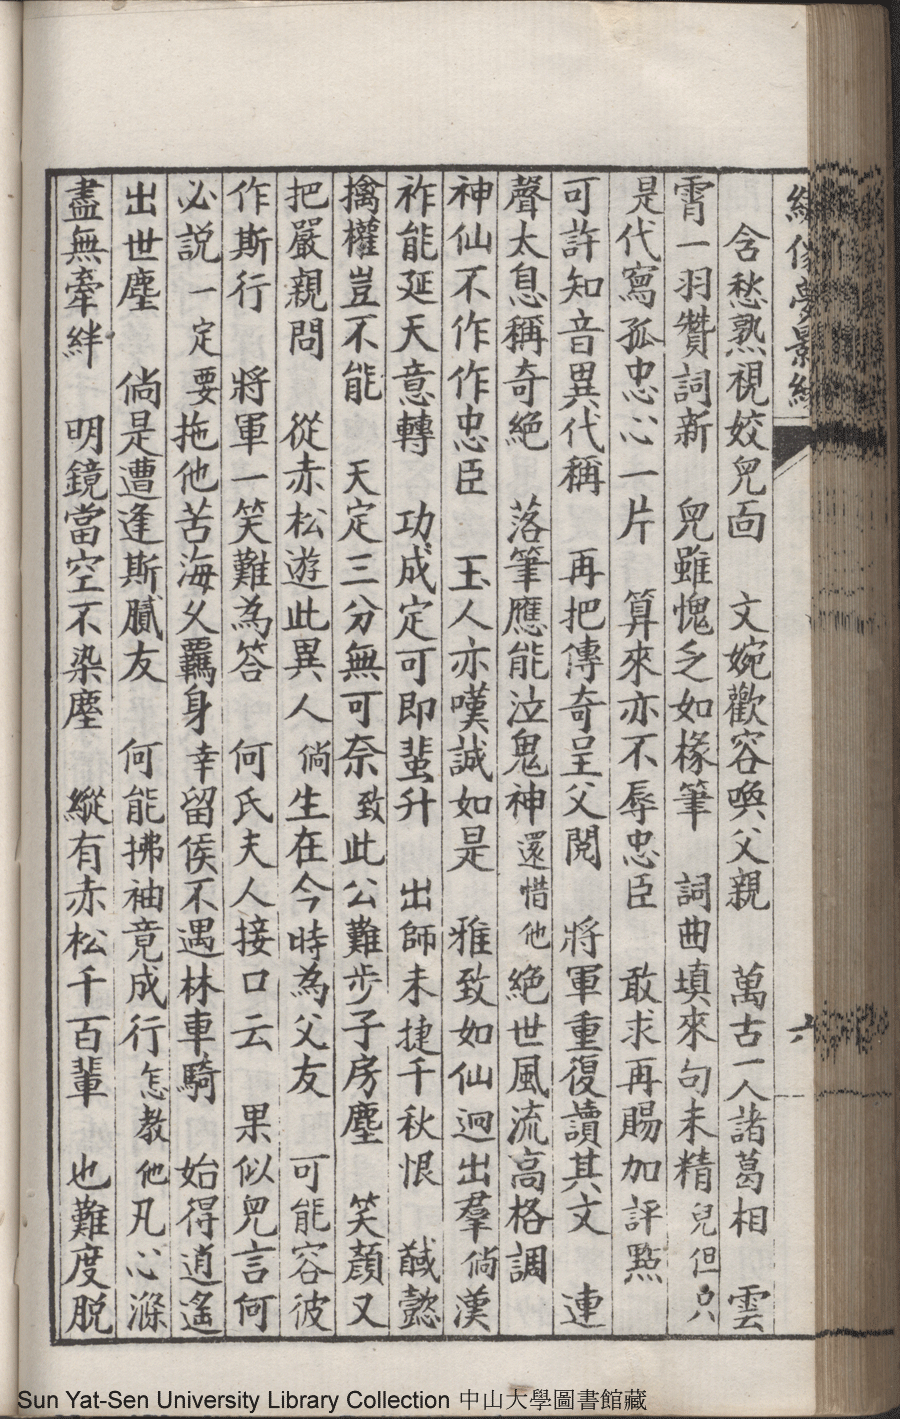 含愁熟視姣兒面　文婉歡容喚父親　萬古一人諸葛相　雲
霄一羽贊詞新　兒雖愧乏如椽筆　詞曲填來句未精兒但只
是代寫孤忠心一片　算來亦不辱忠臣　敢求再賜加評點
可許知音異代稱　再把傳奇呈父閱　將軍重復讀其文　連
聲太息稱奇絕　落筆應能泣鬼神還惜他絕世風流高格調
神仙不作作忠臣　玉人亦嘆誠如是　雅致如仙迥出羣倘漢
祚能延天意轉　功成定可即蜚升　出師未捷千秋恨　馘懿
擒權豈不能　天定三分無可奈致此公難步子房塵　笑顏又
把嚴親問　從赤松遊此異人倘生在今時為父友　可能容彼
作斯行　將軍一笑難為答　何氏夫人接口云　果似兒言何
必說一定要拖他苦海乂羈身幸留侯不遇林車騎　始得逍遙
出世塵　倘是遭逢斯膩友　何能拂袖竟成行怎教他凡心滌
盡無牽絆　明鏡當空不染塵　縱有赤松千百輩　也難度脫
六
Sun Yat-Sen University Library Collection 中山大學圖書館藏